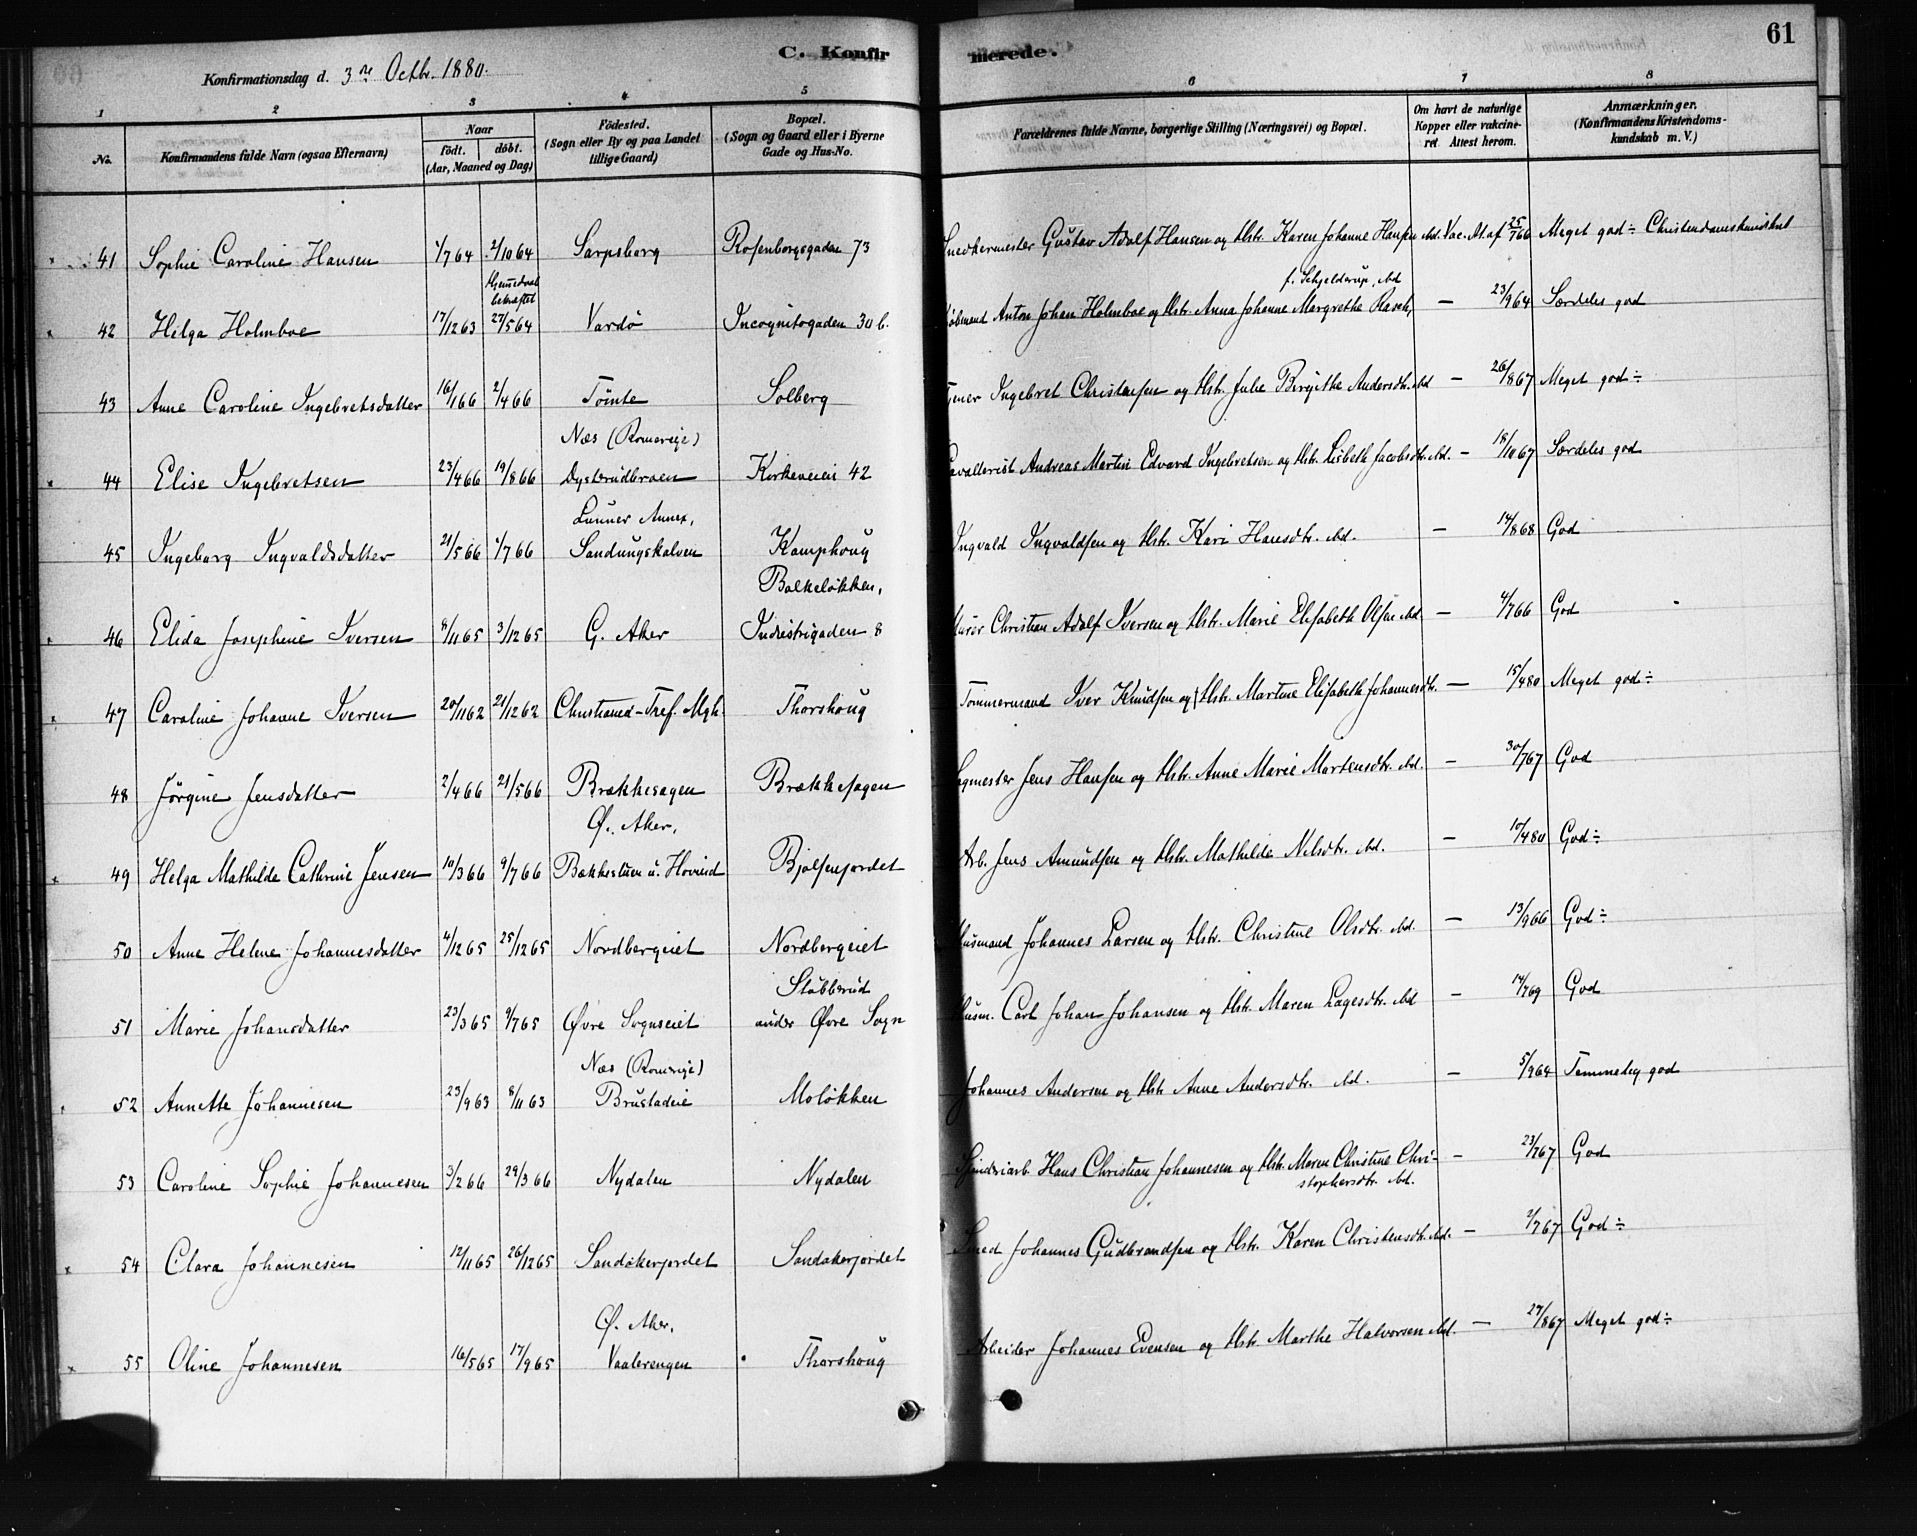 C. Konfirmerede. 61
Konfirmationsdag d. 3die Octbr. 1880.
1 2 3 4 5 6 7 8
No. Konfirmandens fulde Navn (ogsaa Efternavn) Naar födt. döbt. (Aar, Maaned og Dag) Födested. (Sogn eller By og paa Landet tillige Gaard) Bopæl. (Sogn og Gaard eller i Byerne Gade og Hus-No. Forældrenes fulde Navne, borgerlige Stilling (Næringsvei) og Bopæl. Om havt de naturlige Kopper eller vakcineret. Attest herom. Anmærkninger. (Konfirmandens Kristendomskundskab m. V.)
41 Sophie Caroline Hansen 1/7 64 2/10 64 Sarpsborg Rosenborgsgaden 73 Snedkermester Gustav Adolf Hansen og Hstr. Karen Johanne Hansen Ad. Vac. At. af 25/7 66 Meget god ÷ Christendomskundskab
Hjemmedaab bekræftet f. Schjelderup, Ad
42 Helga Holmboe 17/12 63 27/5 64 Vardö Incognitogaden 30 b. Kjöbmand Anton Johan Holmboe og Hstr. Anna Johanne Margrethe Rasch, — 23/9 64 Særdeles god
43 Anne Caroline Ingebretsdatter 16/1 66 2/4 66 Tömte Solberg Ingebret Christensen og Hstr. Julie Birgithe Andersdtr. Ad — 26/8 67 Meget god ÷
Næs (Romerige)
44 Elise Ingebretsen 23/4 66 19/8 66 Dysterudbraen Kirkeveien 42 Cavallerist Andreas Martin Edvard Ingebretsen og Hstr. Lisbeth Jacobsdtr. Ad. — 18/10 67 Særdeles god
Lunner Annex,
45 Ingeborg Ingvaldsdatter 21/5 66 1/7 66 Sandungskalven Kamphoug Ingvald Ingvaldsen og Hstr. Kari Hansdtr. Ad. — 14/8 68 God
Balkelökken,
46 Elida Josephine Iversen 8/11 65 3/12 65 G. Aker Industrigaden 8 Murer Christian Adolf Iversen og Hstr. Marie Elisabeth Olsen Ad — 4/7 66 God
47 Caroline Johanne Iversen 20/11 62 21/12 62 Christiansd - Tref. Mgh. Thorshoug Tömmermand Iver Knudsen og Hstr. Martine Elisabeth Johannesdtr. — 15/4 80 Meget god ÷
48 Jörgine Jensdatter 2/4 66 21/5 66 Brækkesagen Brækkesagen Sagmester Jens Hansen og Hstr. Anne Marie Mortensdtr. Ad. — 30/7 67 God
Ö. Aker,
49 Helga Mathilde Cathrine Jensen 10/3 66 9/7 66 Bækkestuen u. Hovind Bjölsenjordet Arb. Jens Amundsen og Hstr. Mathilde Nilsdtr. Ad. — 10/4 80 God ÷
50 Anne Helene Johannesdatter 4/12 65 25/12 65 Nordbergeiet Nordbergeiet Husmand Johannes Larsen og Hstr. Christine Olsdtr. Ad. — 13/9 66 God ÷
Stöbberud
51 Marie Johansdatter 23/3 65 9/7 65 Övre Sognseiet under Övre Sogn Husm. Carl Johan Johansen og Hstr. Maren Lagesdtr. Ad — 14/7 69 God
Næs (Romerige)
52 Annette Johannesen 23/9 63 8/11 63 Brustadeie Molökken Johannes Andersen og Hstr. Anne Andersdtr. Ad. — 5/9 64 Temmelig god
53 Caroline Sophie Johannesen 3/2 66 29/3 66 Nydalen Nydalen Spinderiarb. Hans Christian Johannesen og Hstr. Maren Christine Christophersdtr. Ad. — 23/7 67 God
54 Clara Johannesen 12/11 65 26/12 65 Sandakerjordet Sandakerjordet Smed Johannes Gudbrandsen og Hstr. Karen Christensdtr. Ad. — 2/7 67 God ÷
Ö. Aker,
55 Oline Johannesen 16/5 65 17/9 65 Vaalerengen Thorshoug Arbeider Johannes Evensen og Hstr. Marthe Halvorsen Ad. — 27/8 67 Meget god ÷